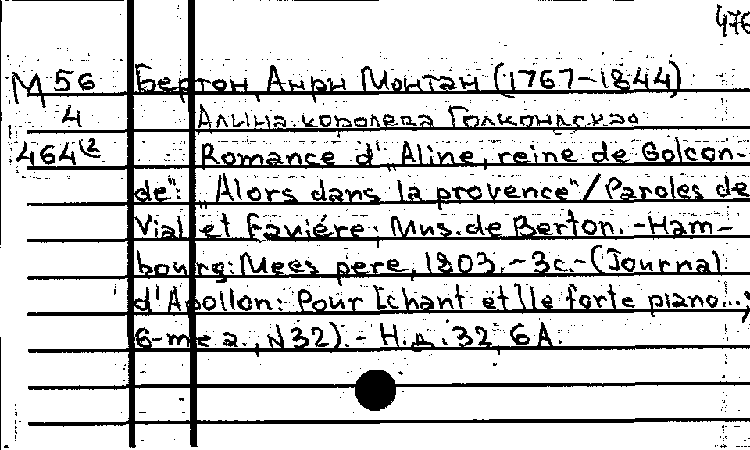 476
М 56 Бертон, Анри Монтан (1767-1844)
4 Алина, королева Голкондская
464(2 Romance d' „Aline, reine de Golcon-
de": „Alors dans la provence"/Paroles de
Vial et Faviére; Mus. de Berton. - Ham-
bourg: Mees pere, 1803. - 3c. - (Journal
d'Apollon: Pour [chant et] le forte piano...;
6-me a., N32). - Н.д. 32, 6А.